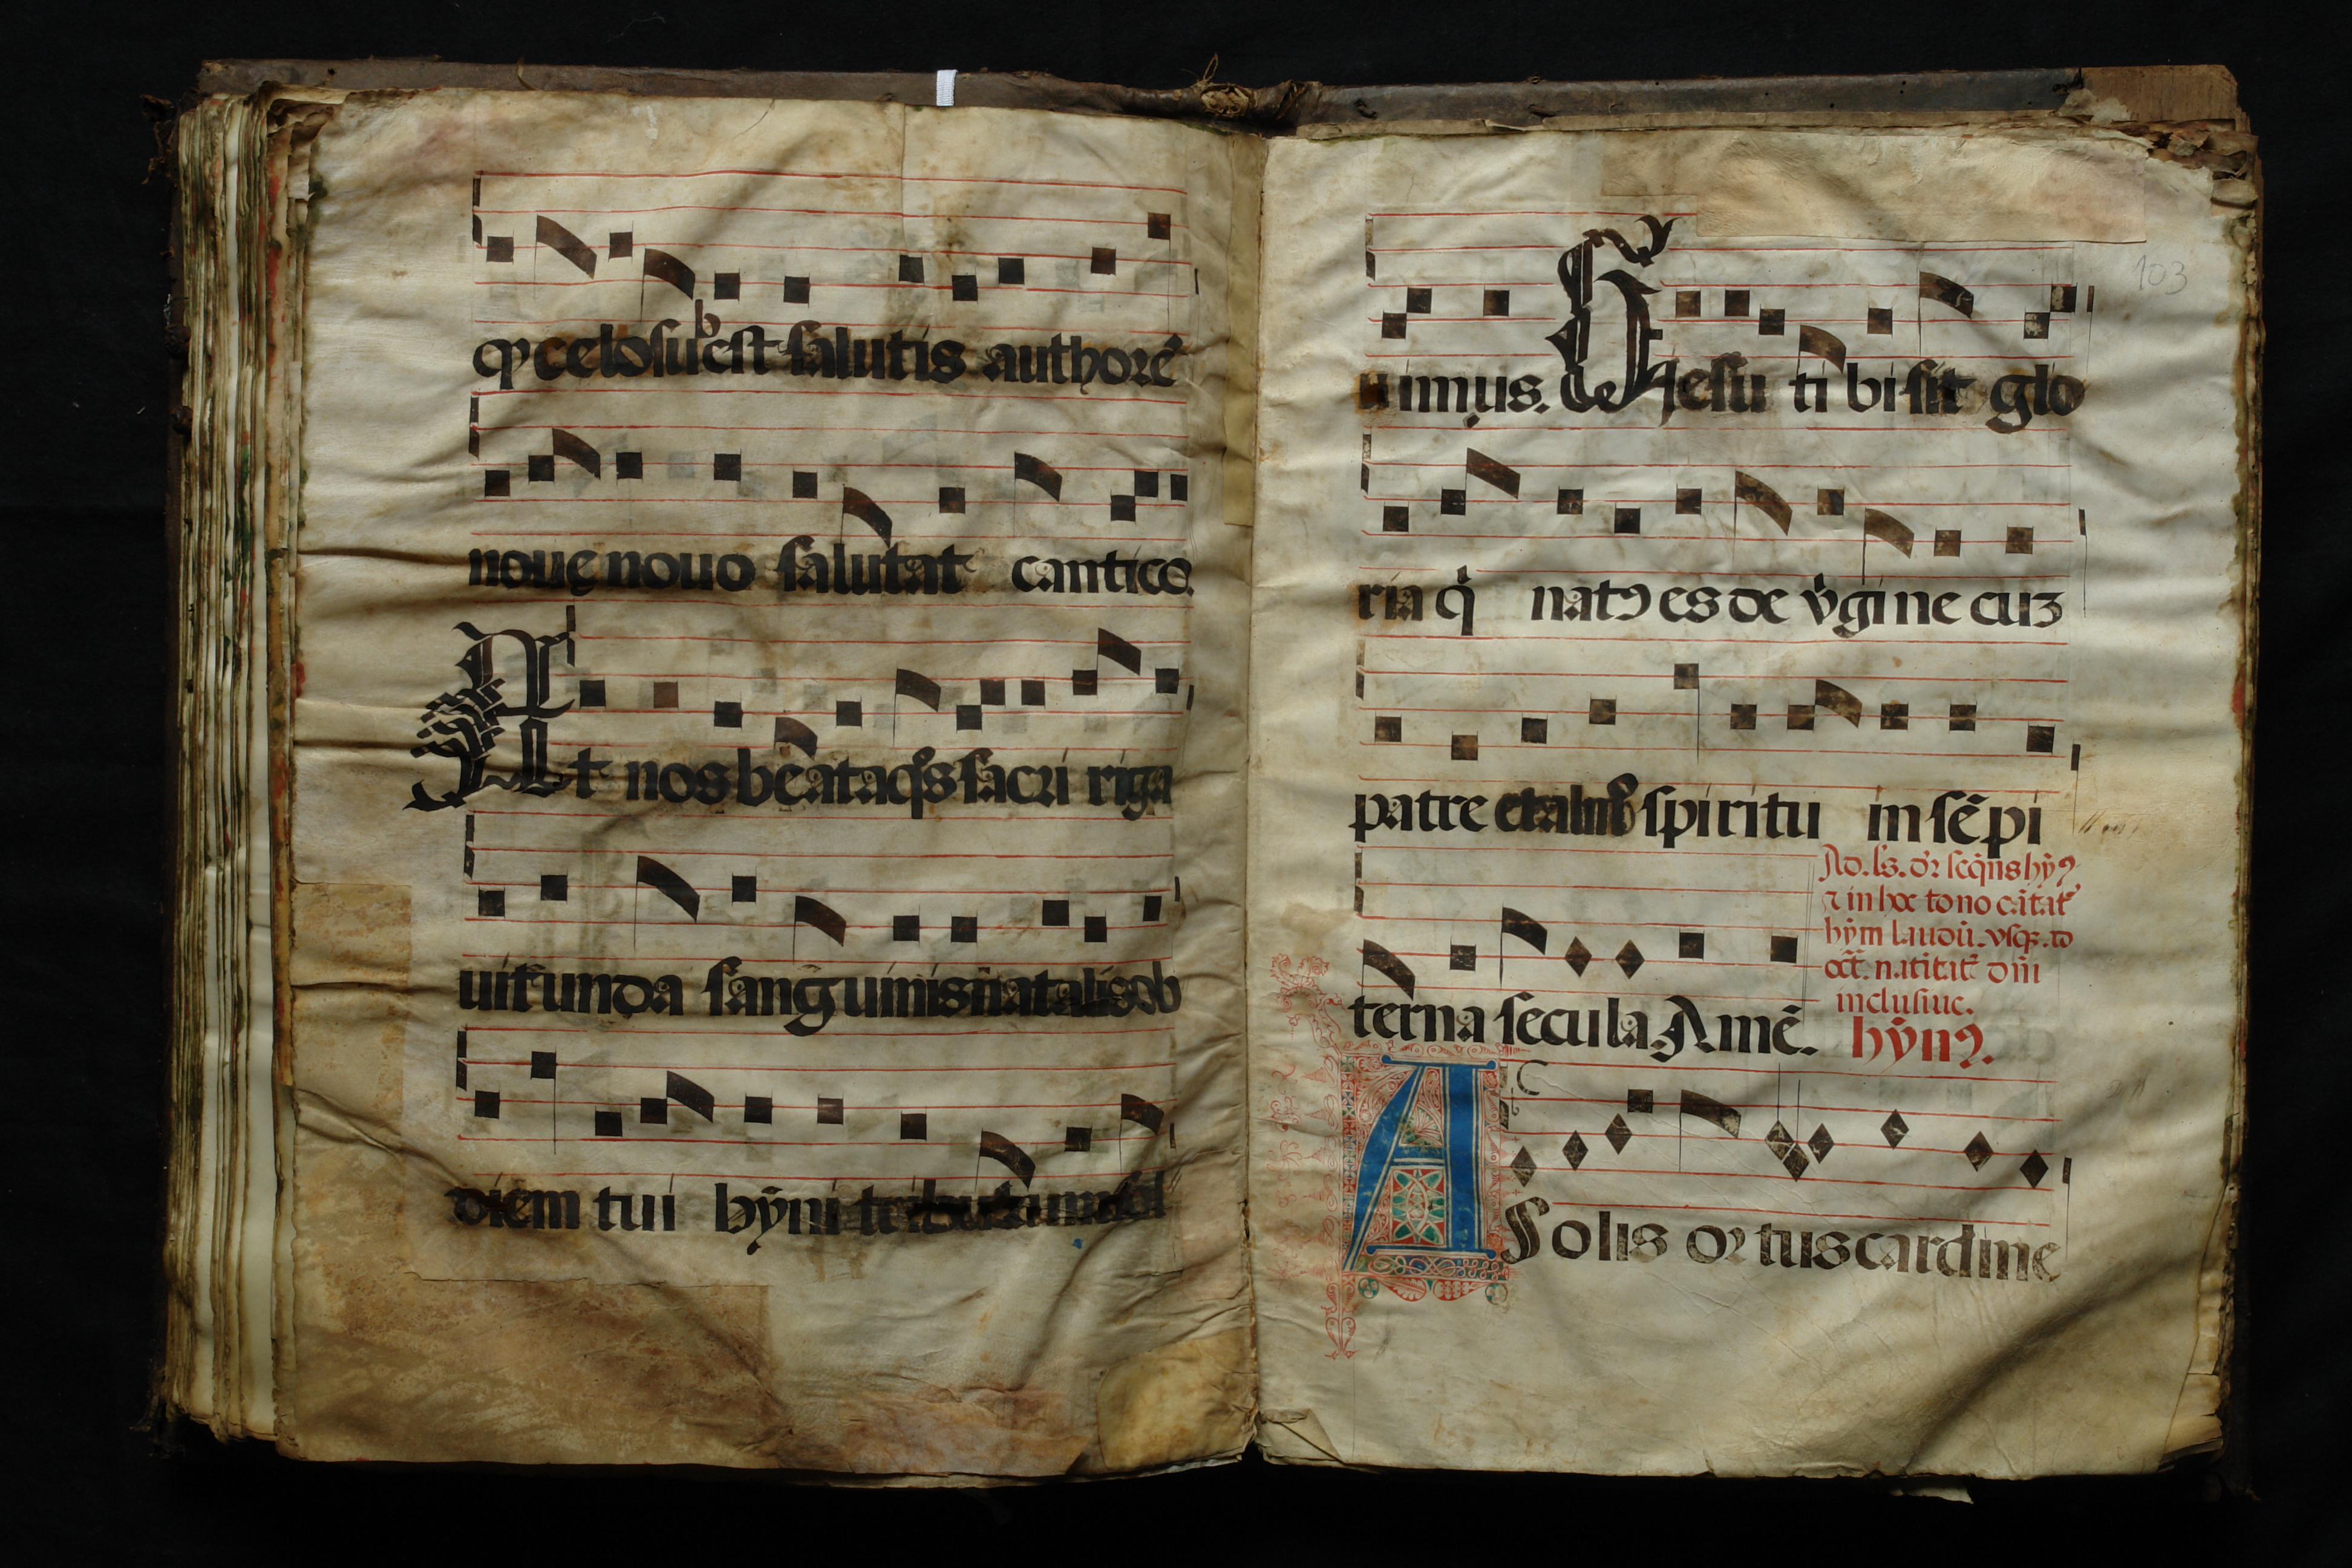 qȝ celo subest salutis authorē
nouę nouo salutat cantico.
Et nos beata qͥs sacri riga
uit unda sanguinis natalis ob
diem tui hȳni tributum sol
103
uimus. Iesu tibi sit glo
ria qͥ natꝰ es de v̓gine cuȝ
patre et almo spiritu in sēpi
terna secula. Amē.
Ad. lȝ. dr̄ seq̄ns hȳꝰ
⁊ in hoc tono cātat̄
hȳm laudū. vsqȝ. ad
oct̄. natitat̄ dn̄i
inclusiue.
hȳnꝰ.
A Solis ortus cardine